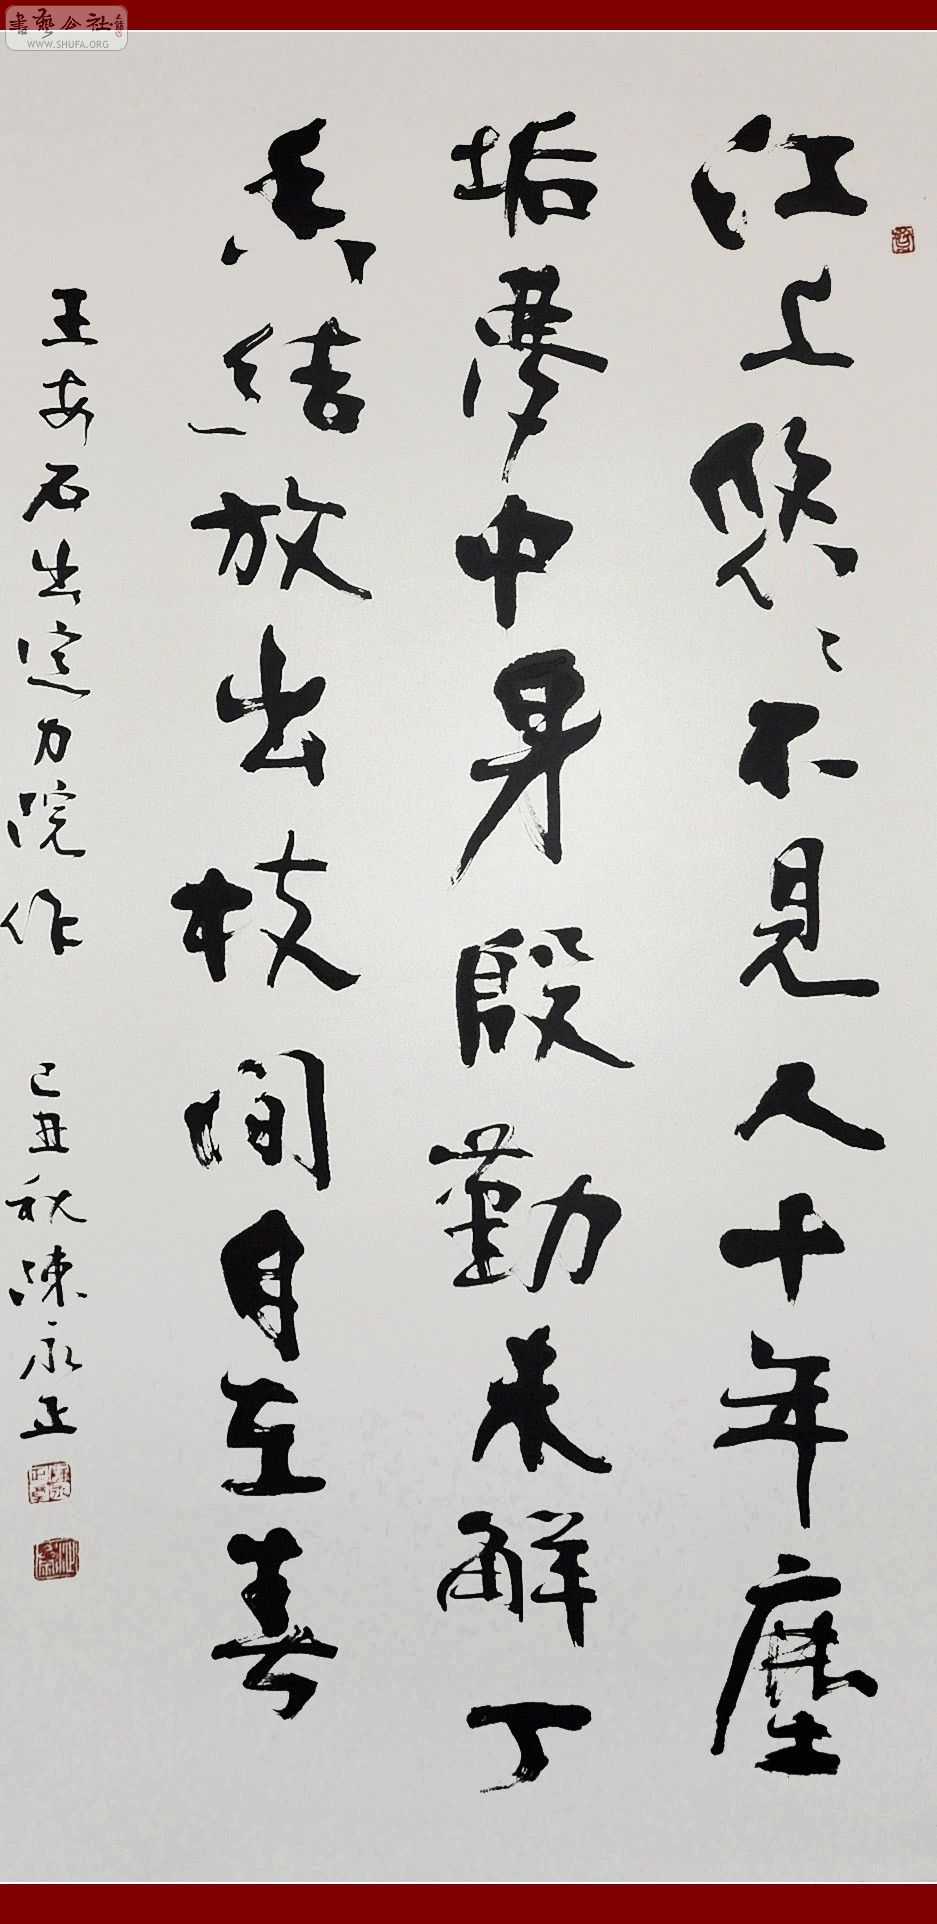 江上悠〻不見人十年塵
垢夢中身殷勤未解丁
香結放出枝間自在春
王安石出定力院作
己丑秋陳永正
書藝公社
WWW.SHUFA.ORG